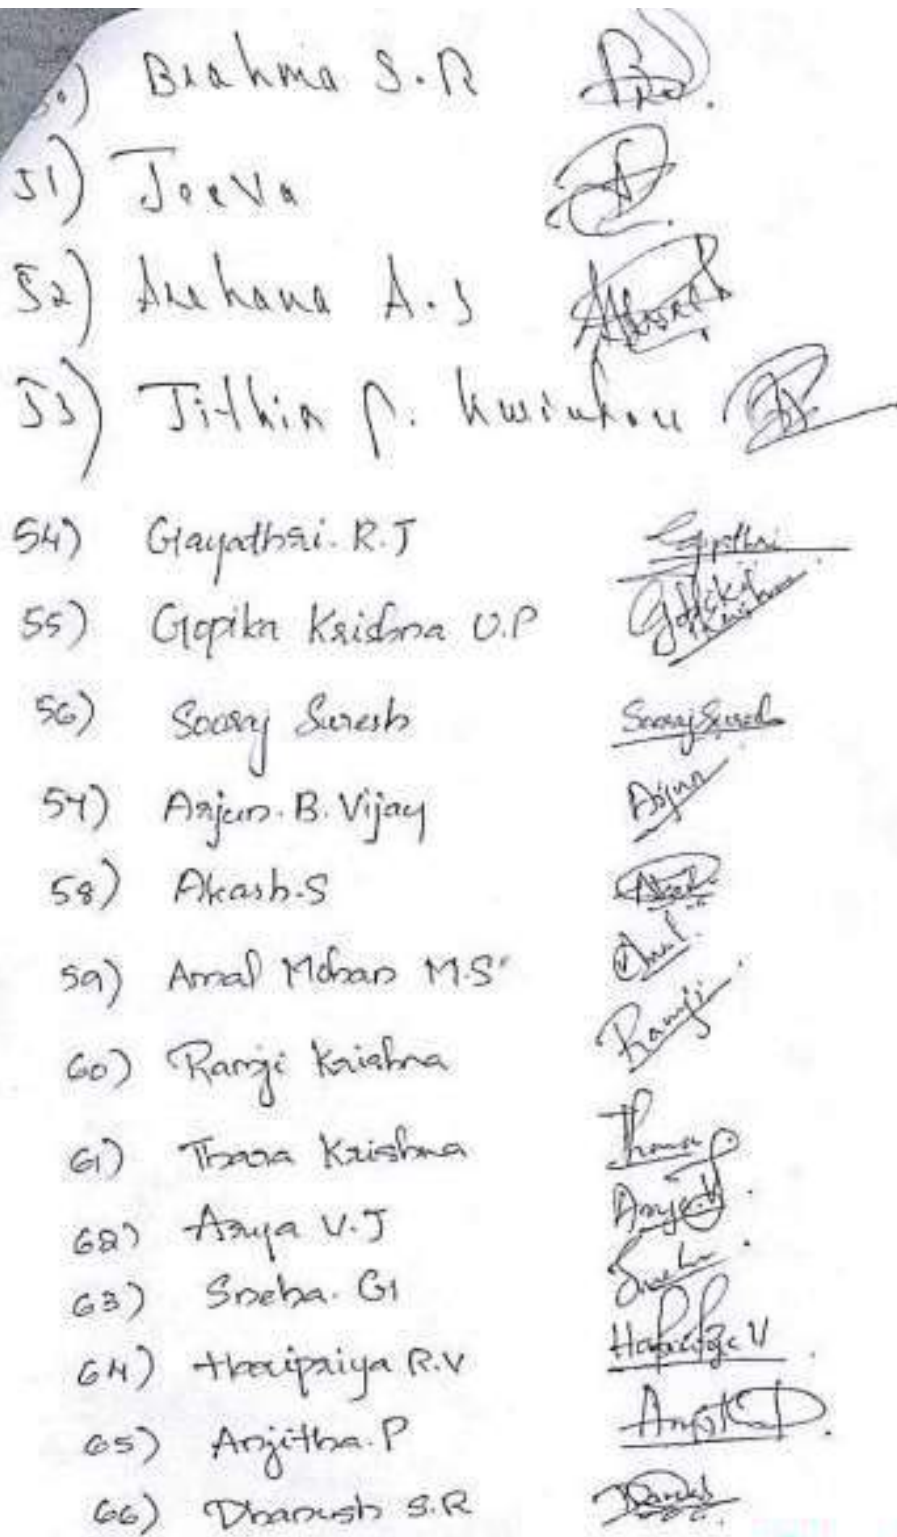 50) Brahma S.R
51) Jeeva
52) Archana A.S
53) Jithin P.
54) Gayathri. R.J Gayathri
55) Gopika Krishna U.P Gopika Krishna
56) Sooraj Suresh Sooraj Suresh
57) Arjun. B. Vijay Arjun
58) Akash.S
59) Amal Mohan M.S Amal
60) Ramji Krishna Ramji
61) Thara Krishna Thara
62) Arya V.J Arya
63) Sneha. G Sneha
64) Haripriya R.V
65) Anjitha. P
66) Dhanush S.R